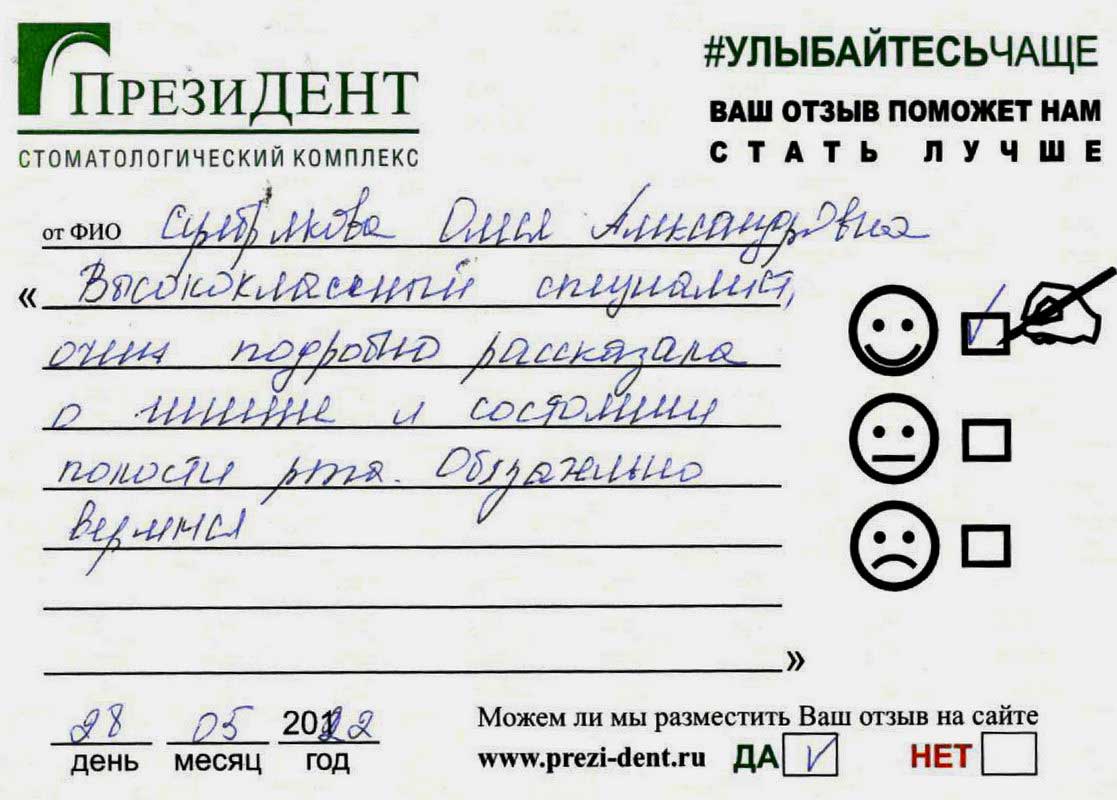 ПрезиДЕНТ
СТОМАТОЛОГИЧЕСКИЙ КОМПЛЕКС
#УЛЫБАЙТЕСЬЧАЩЕ
ВАШ ОТЗЫВ ПОМОЖЕТ НАМ
СТАТЬ ЛУЧШЕ
от ФИО Серебрякова Олеся Александровна
« Высококлассный специалист,
очень подробно рассказала
о лечении и состоянии
полости рта. Обязательно
вернемся
»
28 05 2022
день месяц год
Можем ли мы разместить Ваш отзыв на сайте
www.prezi-dent.ru ДА НЕТ